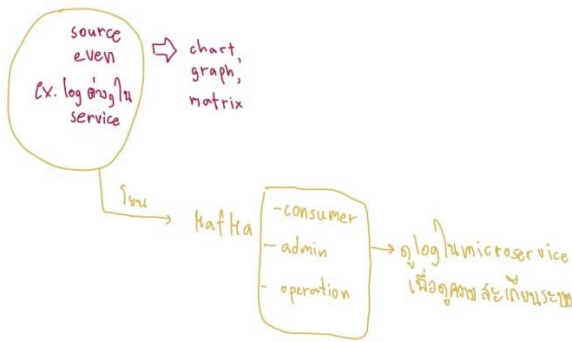 source
even
ex. log ต่างๆใน
service
chart,
graph,
matrix
โยน
Kafka
-consumer
- admin
- operation
ดูlogในmicroservice
เพื่อดูความ